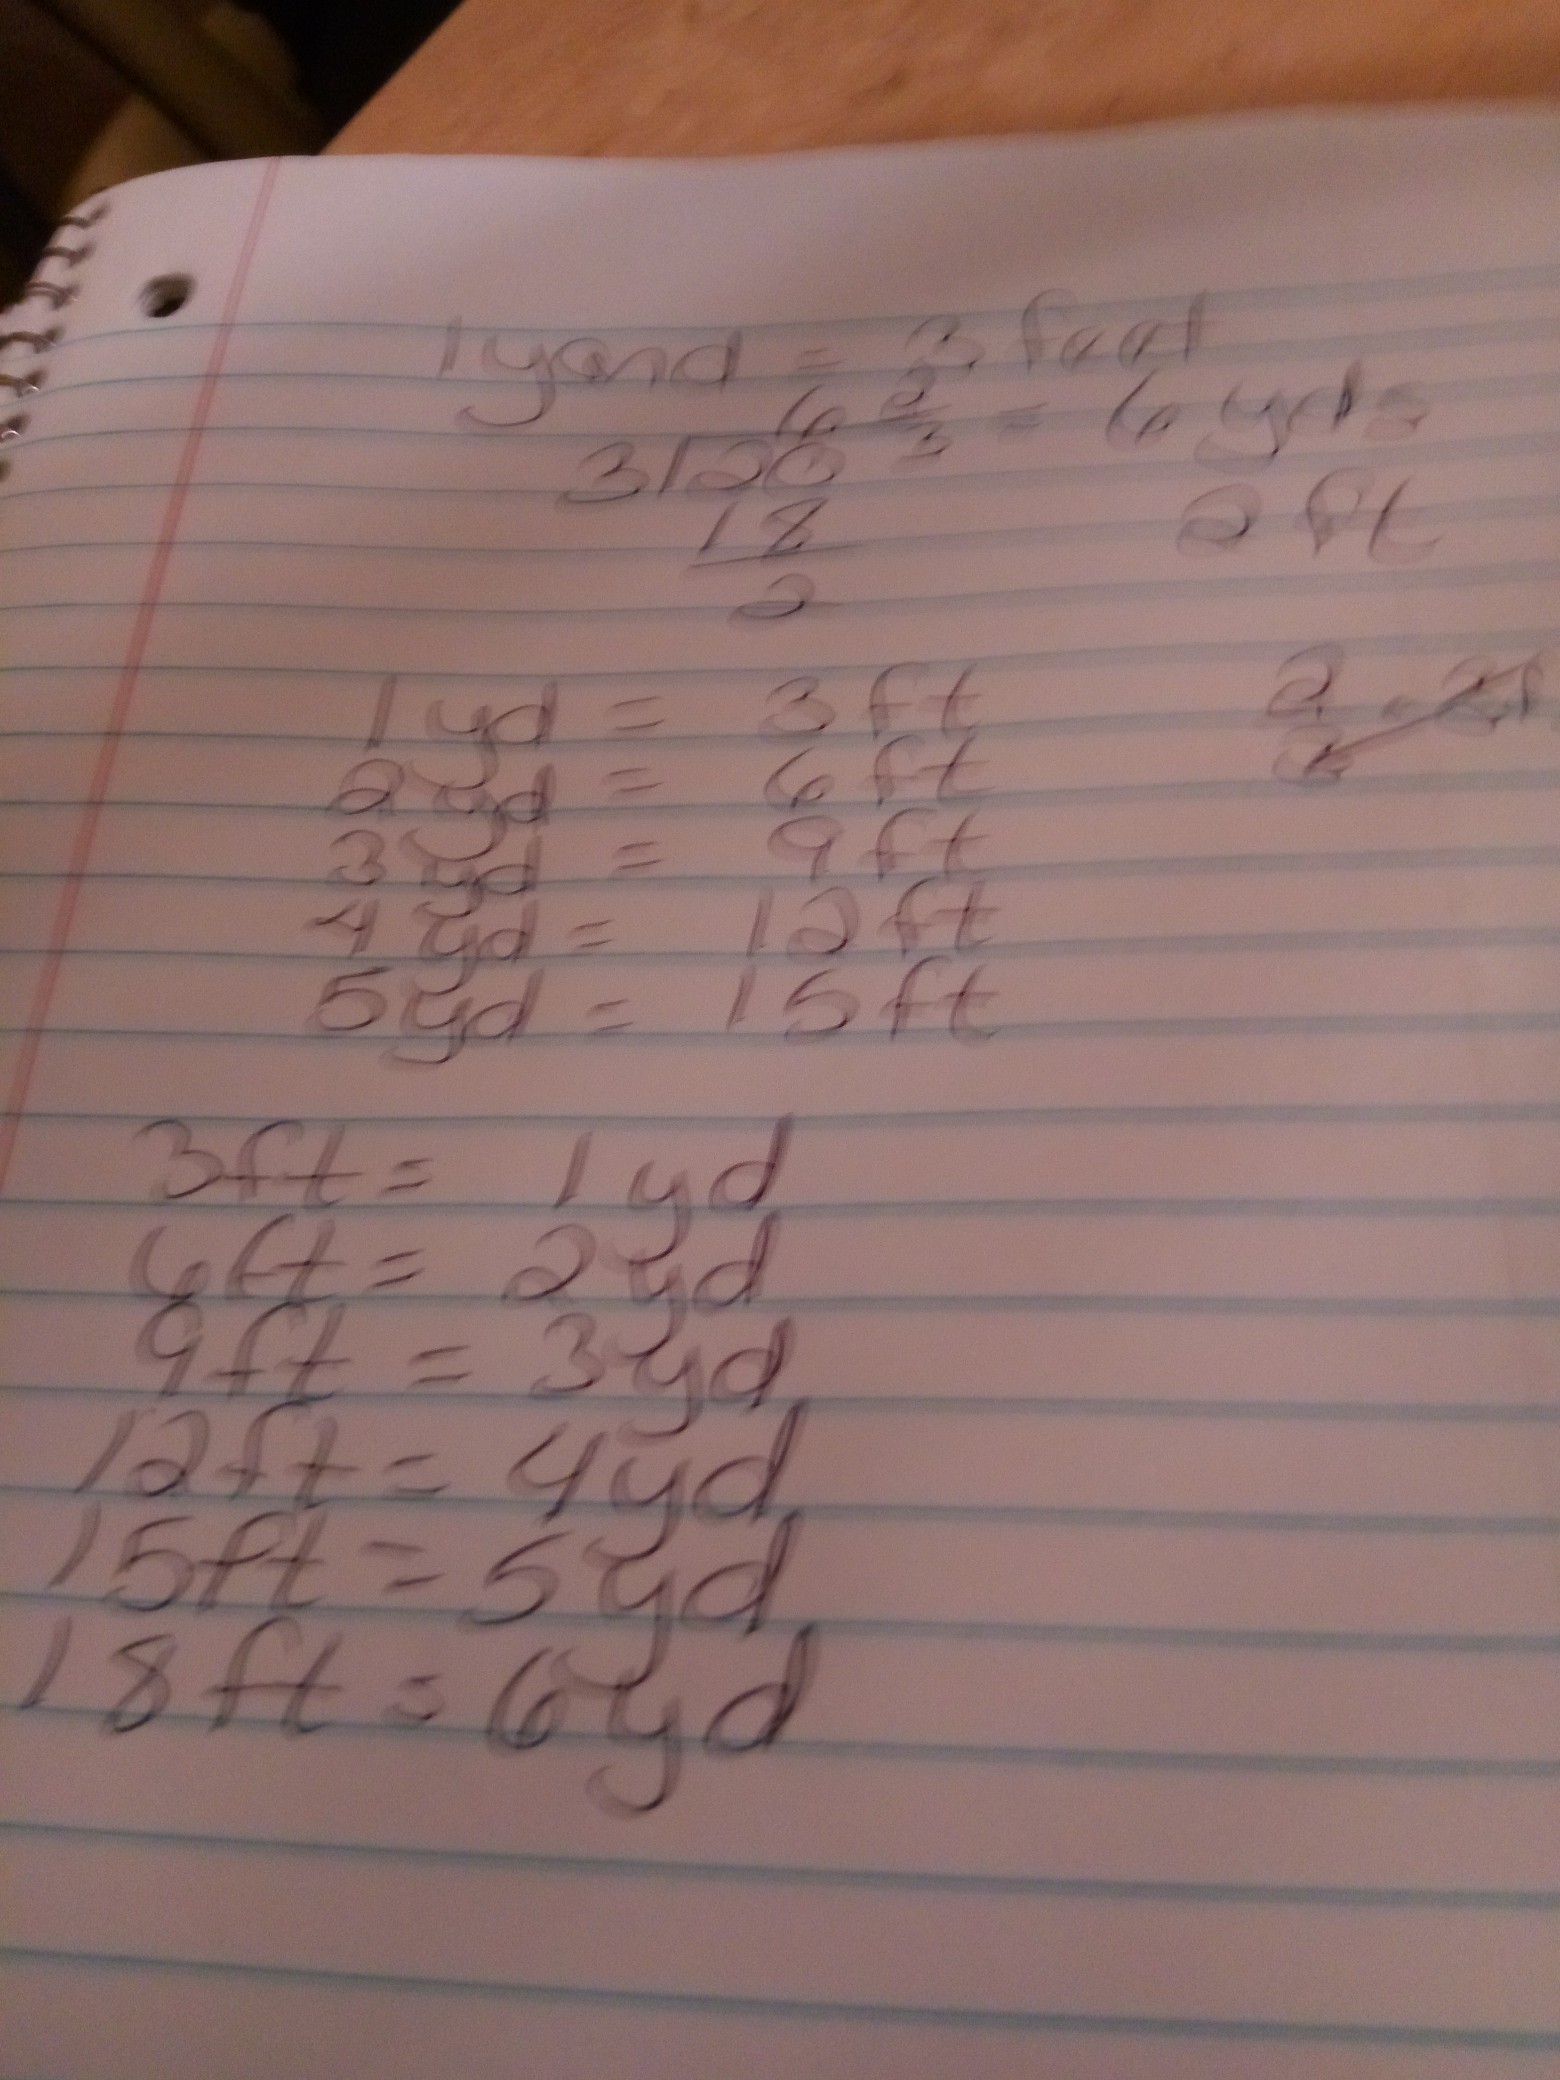 1 yard = 3 feet
6 2/3 = 6 yds
3 20 2 ft
18
2
1 yd = 3 ft 2
2 yd = 6 ft
3 yd = 9 ft
4 yd = 12 ft
5 yd = 15 ft
3 ft = 1 yd
6 ft = 2 yd
9 ft = 3 yd
12 ft = 4 yd
15 ft = 5 yd
18 ft = 6 yd